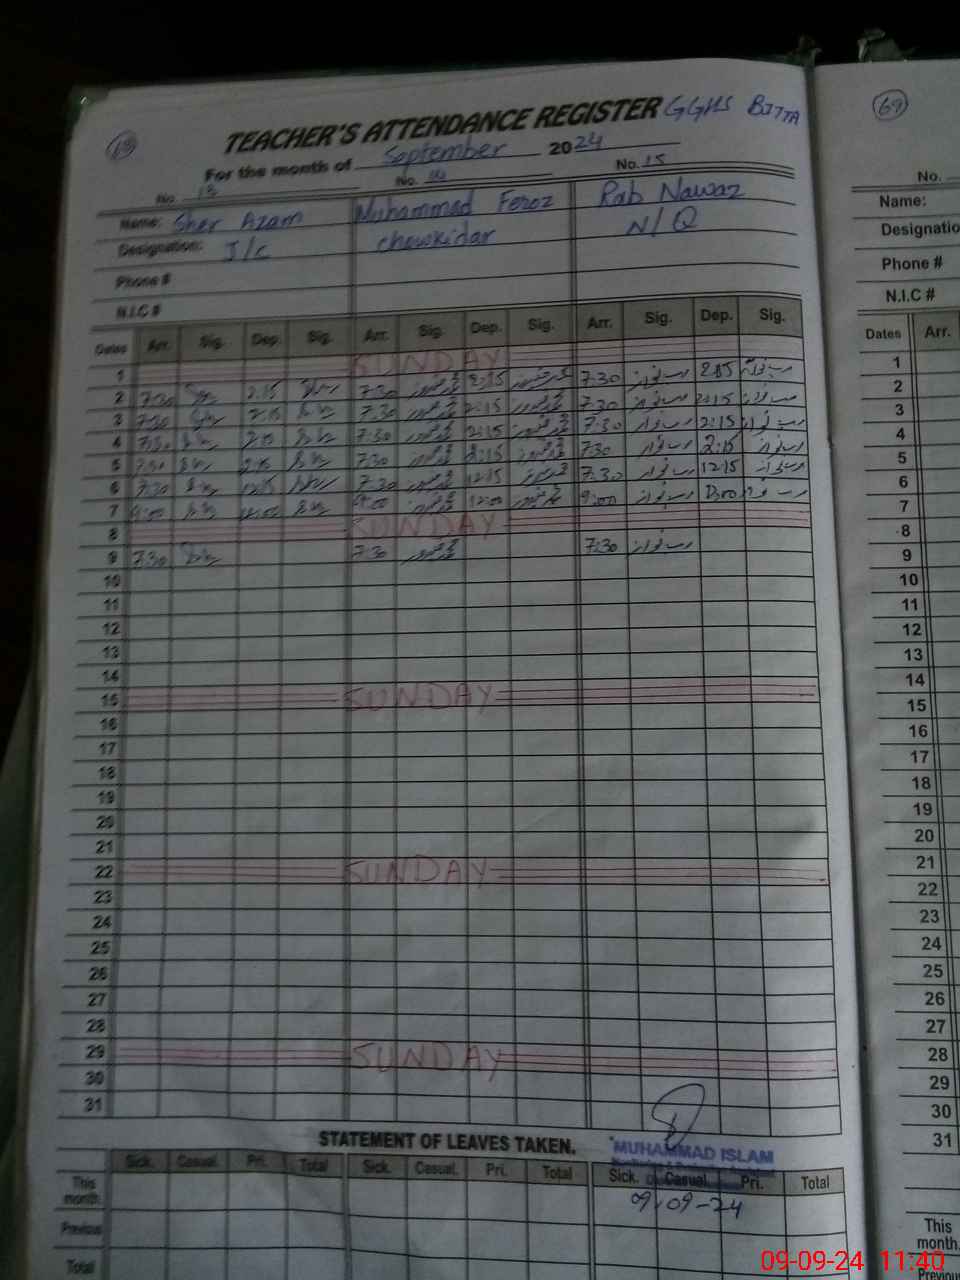 TEACHER'S ATTENDANCE REGISTER GGHS BITTA
For the month of September 2024
No. 13 No. No. 15
Name: Sher Azam Muhammad Feroz Rab Nawaz
Designation: J/C chowkidar N/Q
Phone #
N.I.C #
Dates Arr. Sig. Dep. Sig. Arr. Sig. Dep. Sig. Arr. Sig. Dep. Sig.
1 SUNDAY
2 7:30 2:15 7:30 2:15 7:30 2:15
3 7:30 2:15 7:30 2:15 7:30 2:15
4 7:30 2:15 7:30 2:15 7:30 2:15
5 7:30 2:15 7:30 2:15 7:30 2:15
6 7:30 12:15 7:30 12:15 7:30 12:15
7 9:00 12:00 9:00 12:00 9:00
8 SUNDAY
9 7:30 7:30 7:30
10
11
12
13
14
15 SUNDAY
16
17
18
19
20
21
22 SUNDAY
23
24
25
26
27
28
29 SUNDAY
30
31
STATEMENT OF LEAVES TAKEN.
MUHAMMAD ISLAM
Sick. Casual. Pri. Total Sick. Casual. Pri. Total Sick. Casual. Pri. Total
This month.
09-09-24
Previous
Total
69
No.
Name:
Designatio
Phone #
N.I.C #
Dates Arr.
1
2
3
4
5
6
7
8
9
10
11
12
13
14
15
16
17
18
19
20
21
22
23
24
25
26
27
28
29
30
31
This month.
Previous
09-09-24 11:40